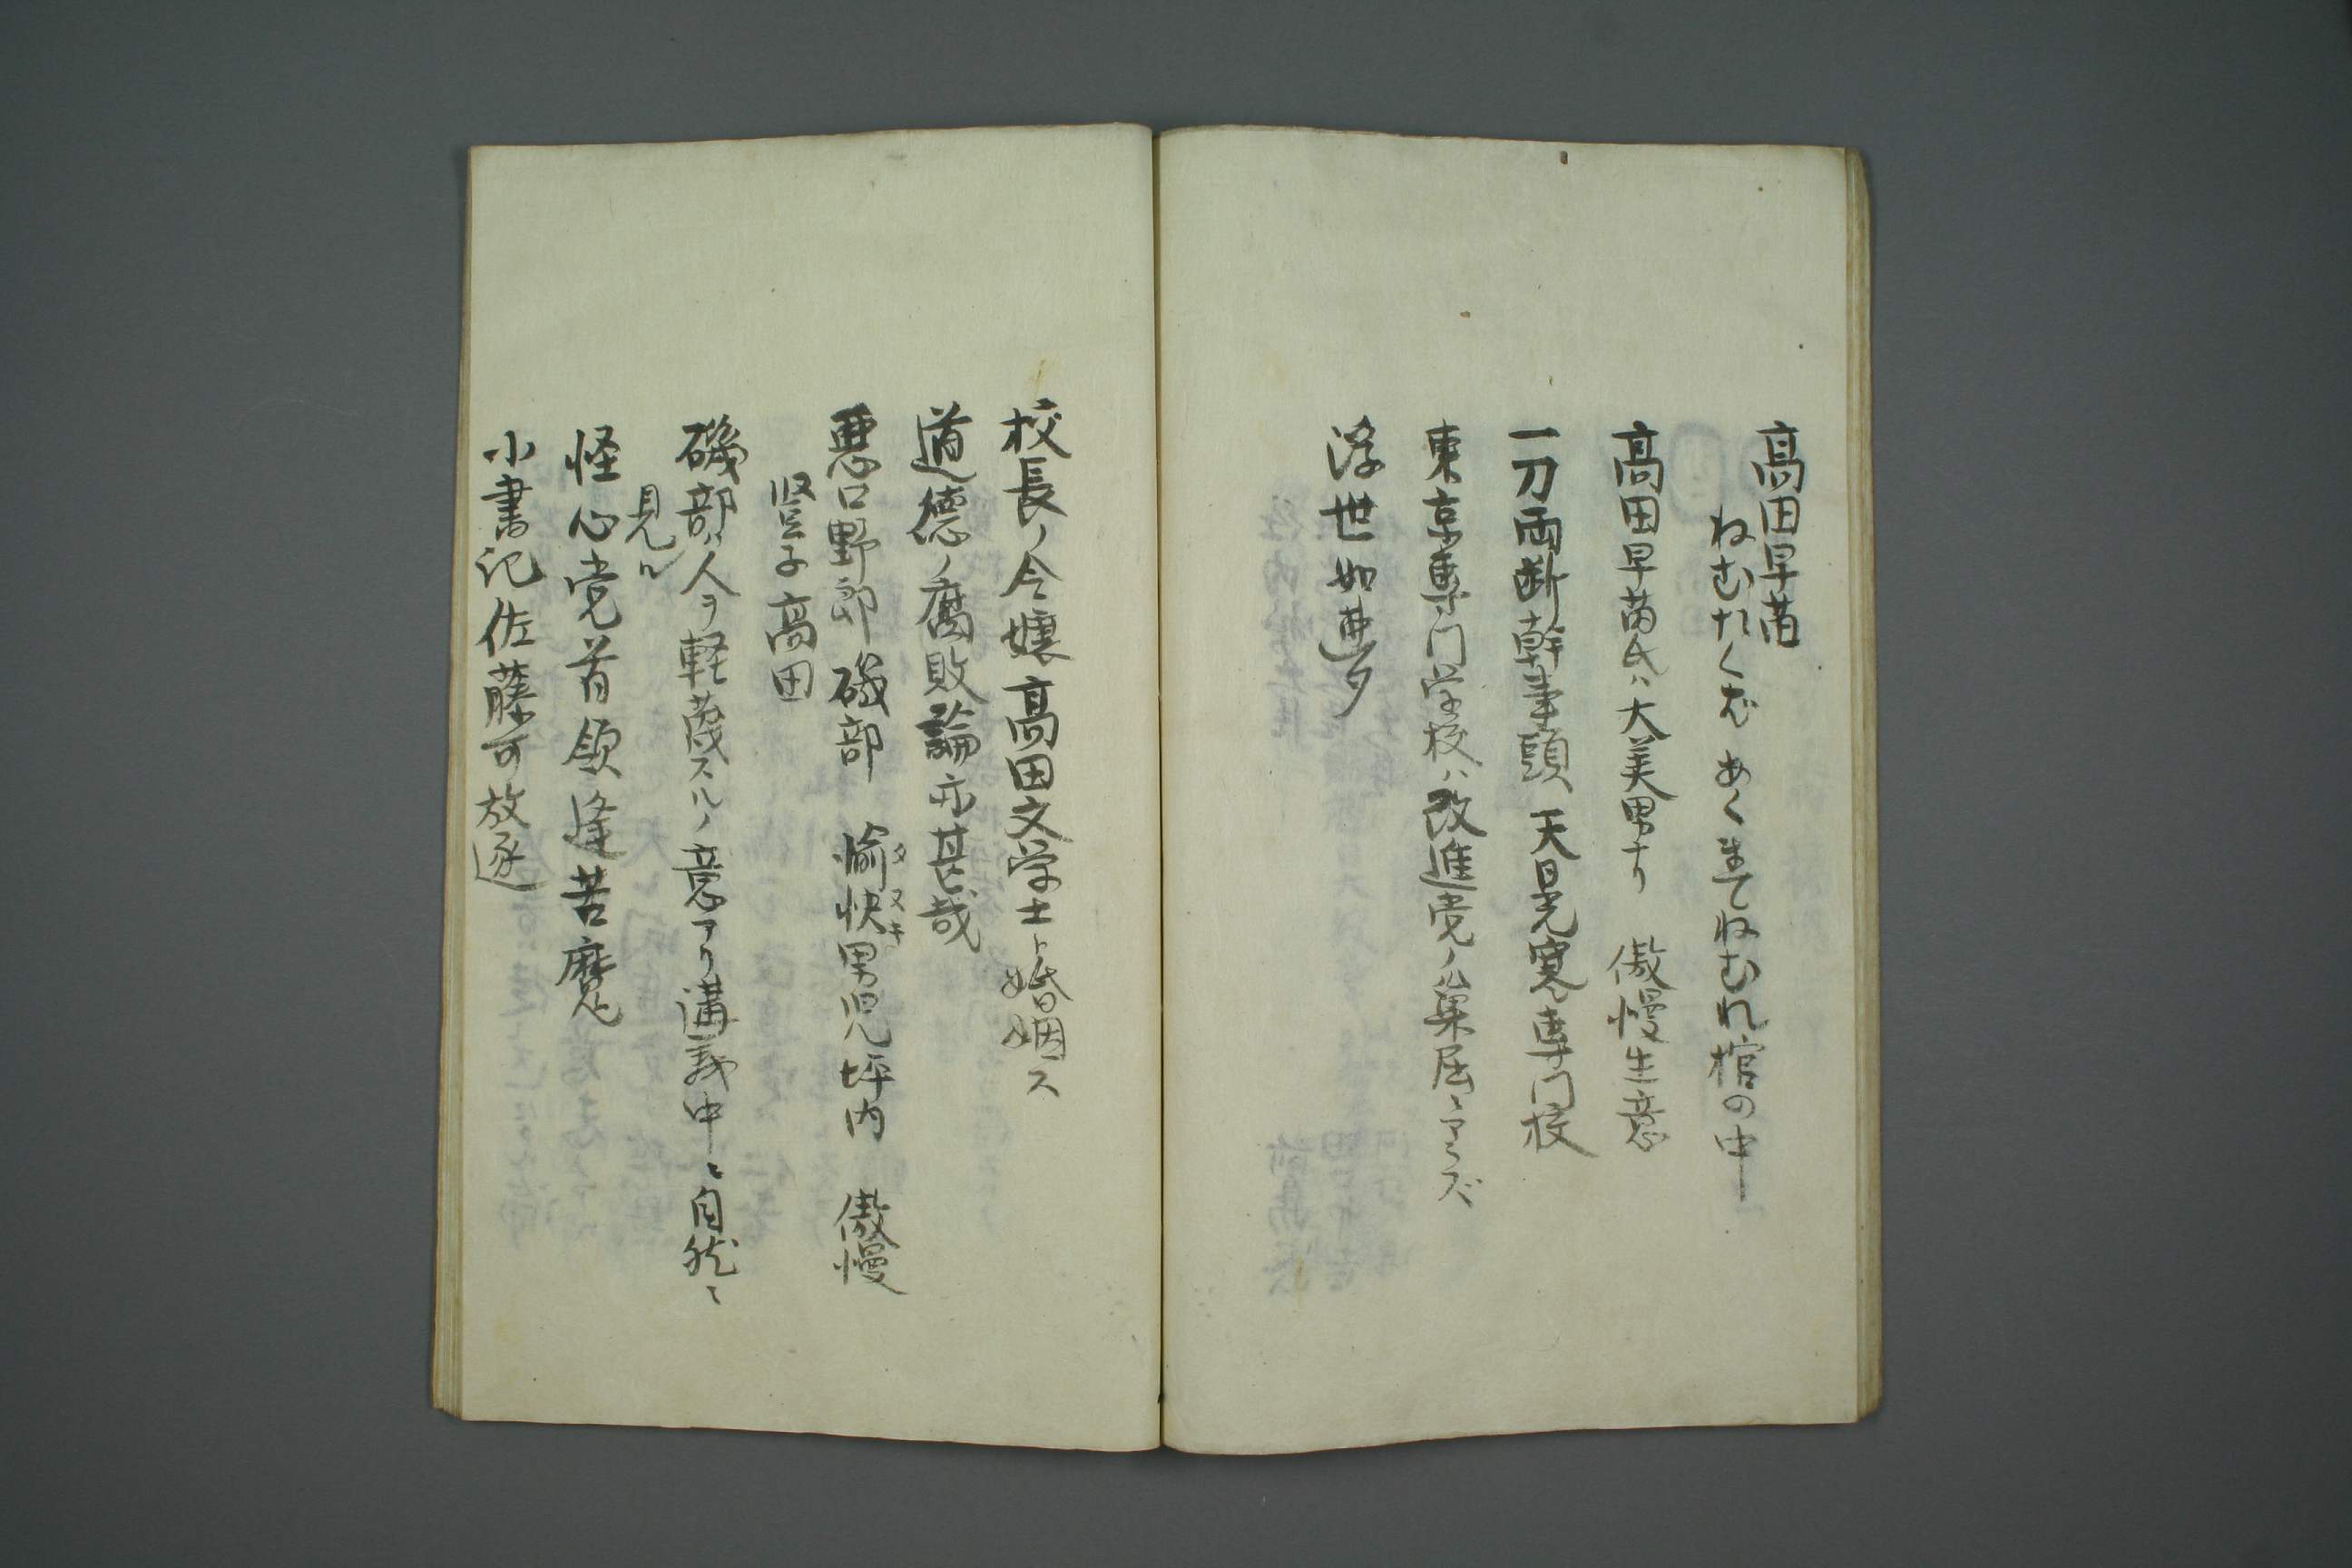 高田早苗
ねむたくばあくまでねむれ棺の中
高田早苗氏ハ大美男ナリ　傲慢生意
一刀両断幹事頭　天日晃寒専門校
東京専門学校ハ改進党ノ巣屈ニアラズ
浮世如夢
校長ノ令嬢高田文学士ト婚姻ス
道徳ノ腐敗論亦甚哉
悪口野郎　磯部　愉快男児坪内　傲慢
タヌキ
豎子高田
磯部ハ人ヲ軽蔑スルノ意アリ講義中ニ自然ニ
見ル
怪心党首領逢苦魔
小書記佐藤可放逐